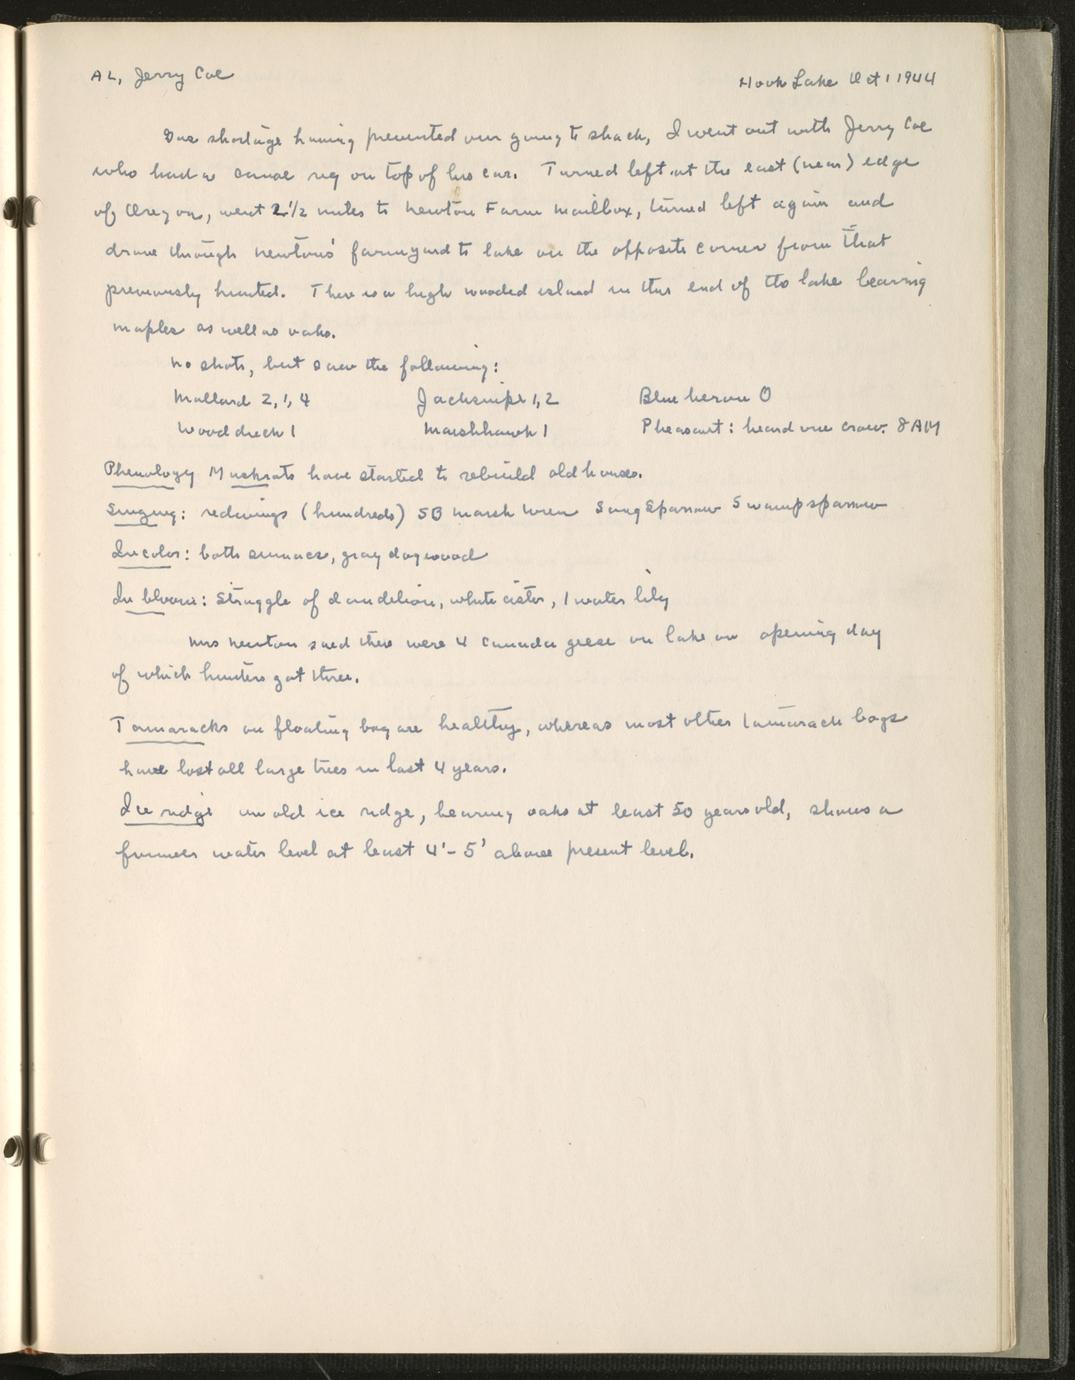 AL, Jerry Coe
Hook Lake Oct 1 1944
Gas shortage having prevented our going to shack, I went out with Jerry Coe
who had a canoe rig on top of his car. Turned left at the east (near) edge
of Oregon, went 2 1/2 miles to Newton Farm mailbox, turned left again and
drove through Newtons' farmyard to lake on the opposite corner from that
previously hunted. There is a high wooded island in this end of the lake bearing
maples as well as oaks.
No shots, but saw the following:
Mallard 2, 1, 4 Jacksnipe 1, 2 Blue heron 0
Wood duck 1 Marshhawk 1 Pheasant: heard one crow. 8 AM
Phenology Muskrats have started to rebuild old houses.
Singing: redwings (hundreds) SB marsh wren Song Sparrow Swamp sparrow
In color: both sumacs, gray dogwood
In bloom: Struggle of dandelion, white aster, 1 water lily
Mrs Newton said there were 4 Canada geese on lake on opening day
of which hunters got three.
Tamaracks on floating bog are healthy, whereas most other tamarack bogs
have lost all large trees in last 4 years.
Ice ridge an old ice ridge, bearing oaks at least 50 years old, shows a
former water level at least 4'-5' above present level.